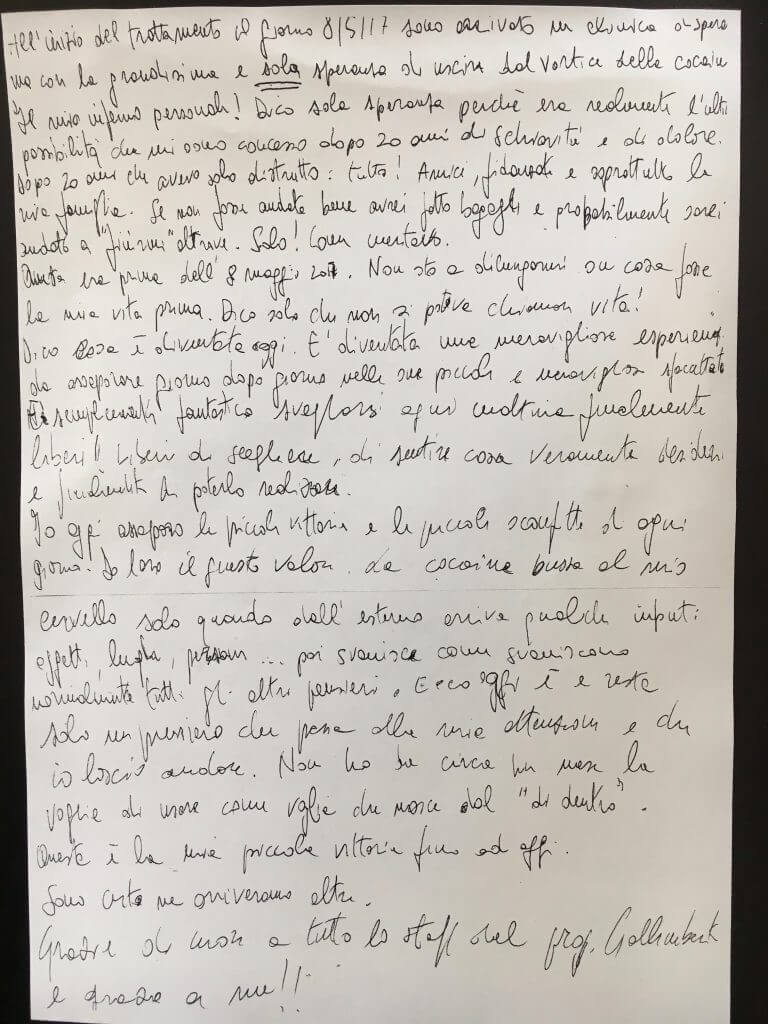 All'inizio del trattamento il giorno 8/5/17 sono arrivato in clinica dispera
ma con la grandissima e sola speranza di uscire dal vortice della cocain
Il mio inferno personale! Dico sola speranza perchè era realmente l'ulti
possibilità che mi sono concesso dopo 20 anni di schiavitù e di dolore.
Dopo 20 anni che avevo solo distrutto: tutto! Amici, fidanzate e soprattutto la
mia famiglia. Se non fosse andata bene avrei fatto bagagli e probabilmente sarei
andato a altrove. Solo!
Questa era prima dell'8 maggio 2017. Non sto a dilungarmi su cosa fosse
la mia vita prima. Dico solo che non si poteva chiamare vita!
Dico cosa è diventata oggi. E' diventata una meravigliosa esperienz
da assaporare giorno dopo giorno nelle sue piccole e meravigliose sfaccettat
E' semplicemente fantastico svegliarsi ogni mattina finalmente
liberi!! Liberi di scegliere, di sentire cosa veramente desideri
e finalmente di poterlo realizzare.
Io oggi assaporo le piccole vittorie e le piccole sconfitte di ogni
giorno. Do loro il giusto valore. La cocaina bussa al mio
cervello solo quando dall'esterno arriva qualche input:
oggetti, luoghi, persone... poi svanisce come svaniscono
normalmente tutti gli altri pensieri. Ecco oggi è e resta
solo un pensiero che passa alla mia attenzione e che
io lascio andare. Non ho da circa un mese la
voglia di usare come voglia che nasce dal "di dentro".
Questa è la mia piccola vittoria fino ad oggi.
Sono certo ne arriveranno altre.
Grazie di cuore a tutto lo staff del prof. Gallimberti
e grazie a me!!